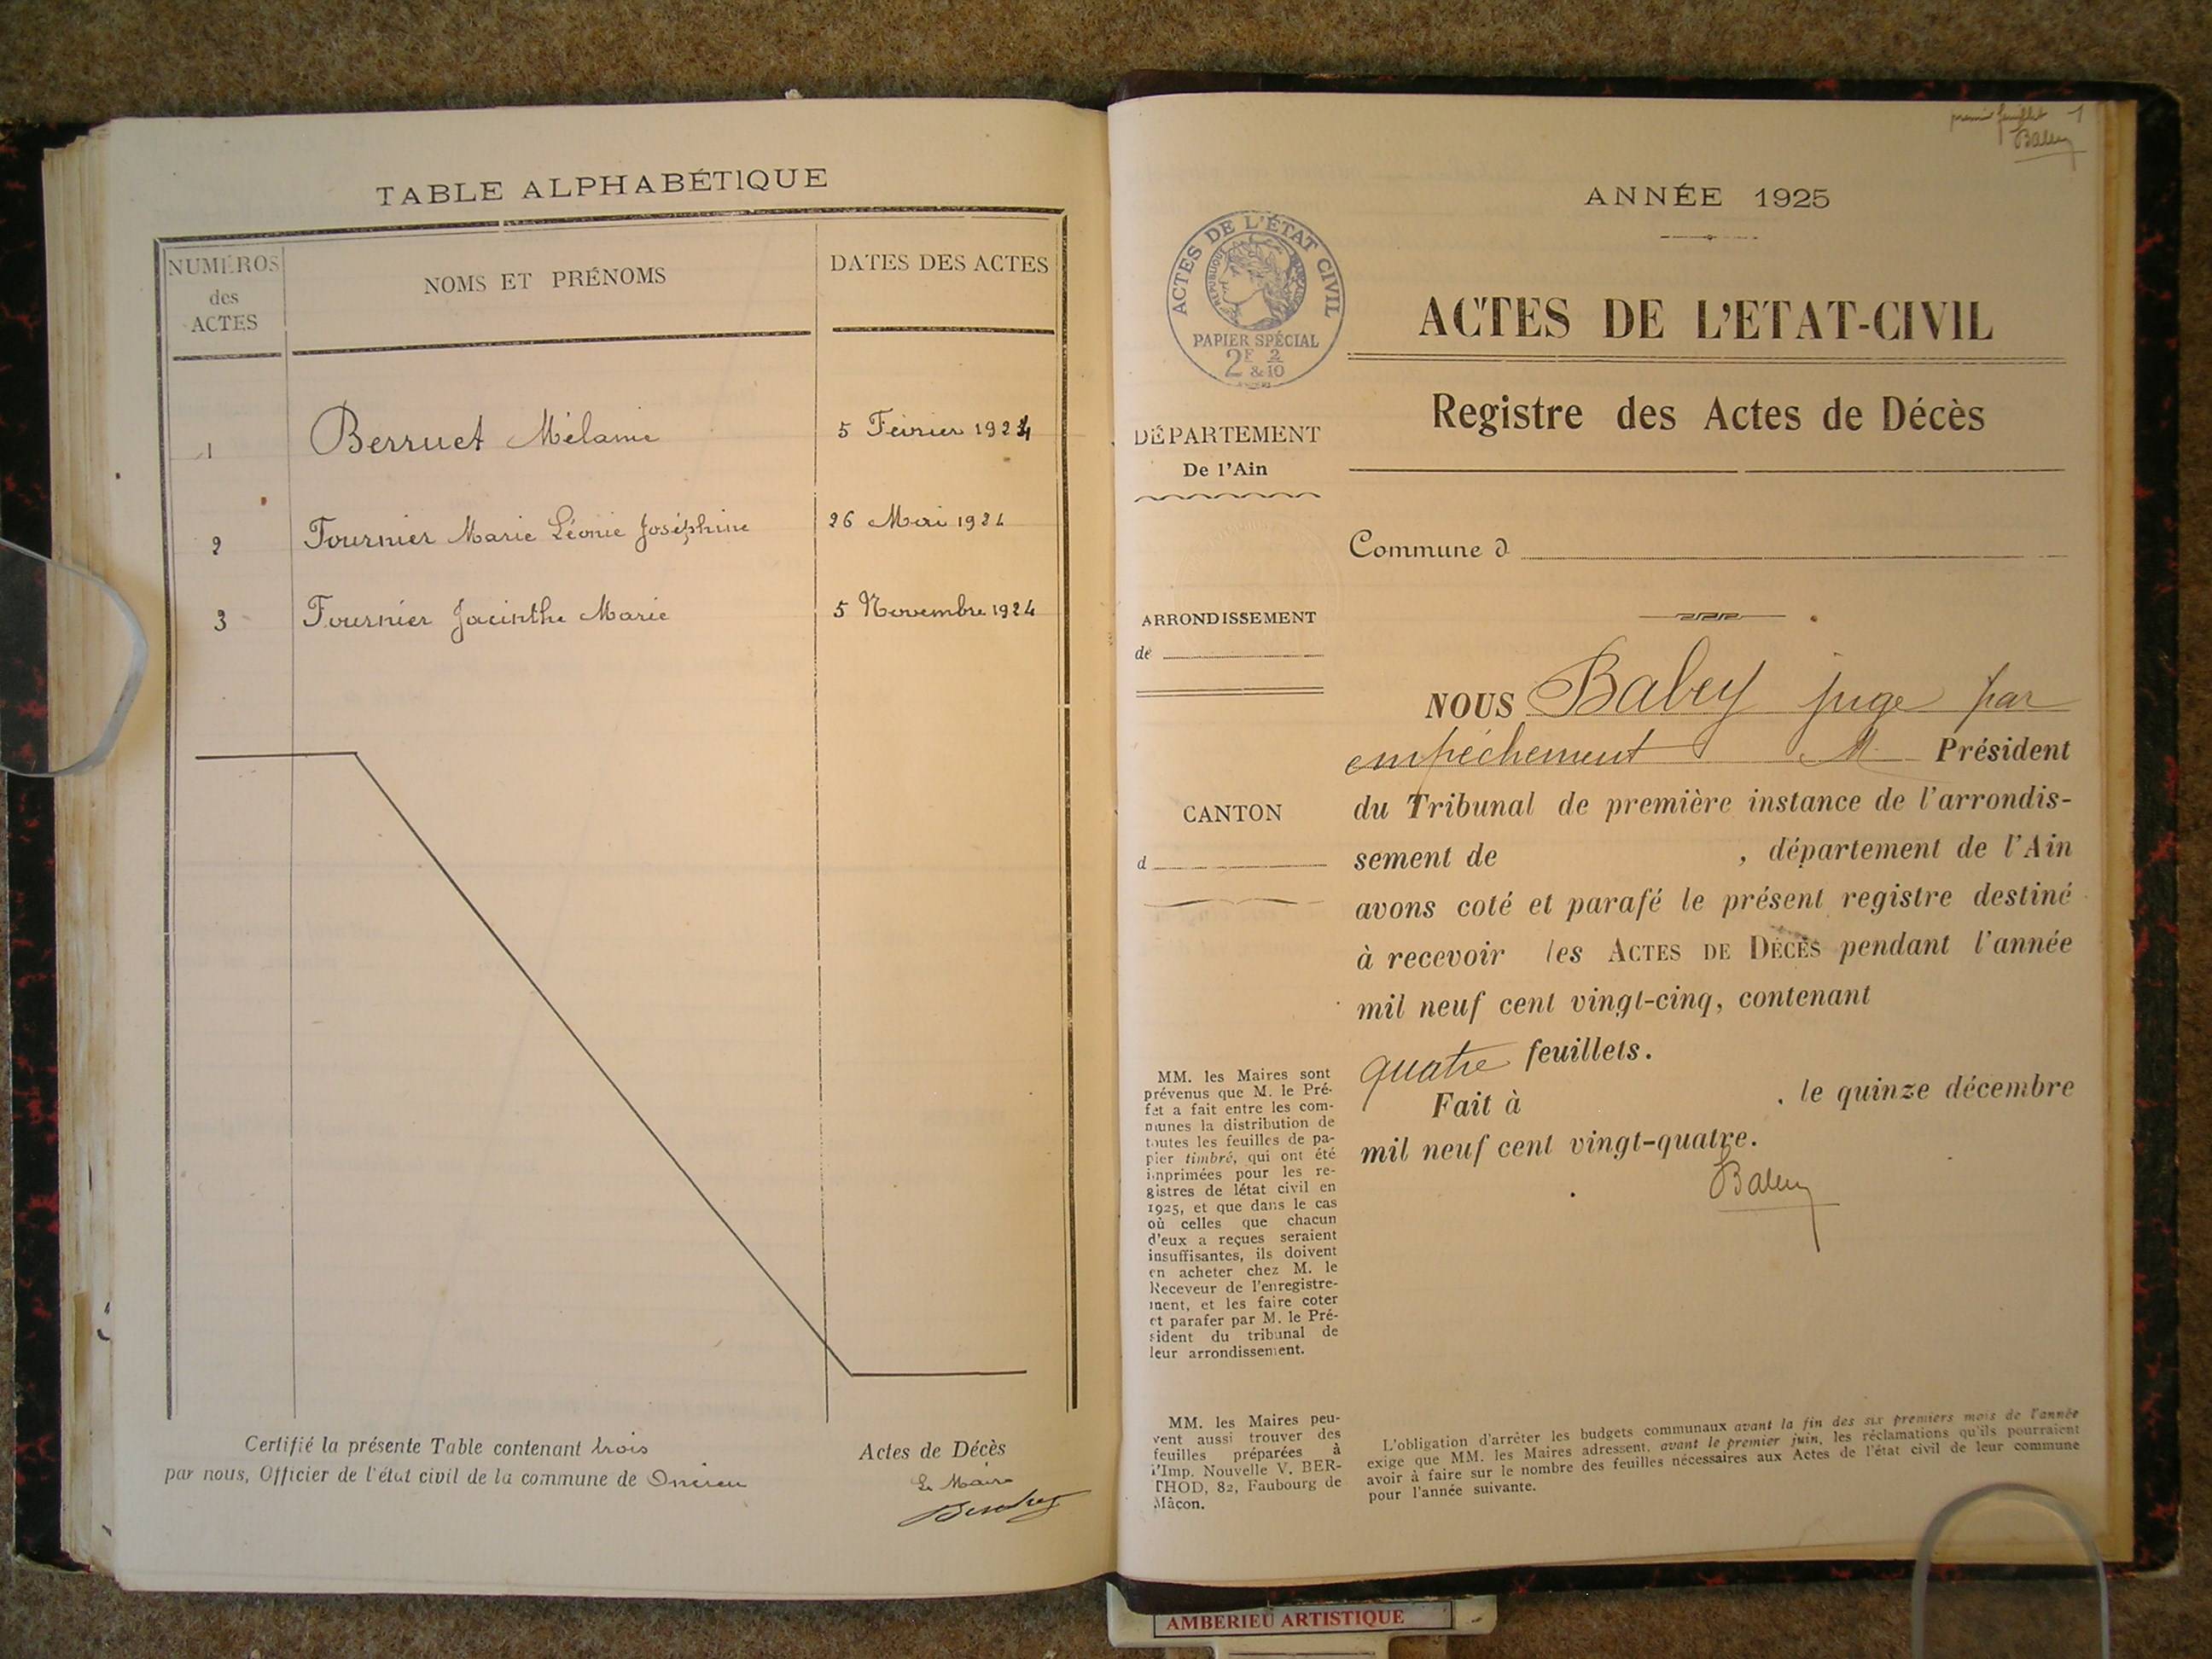 TABLE ALPHABÉTIQUE
NUMÉROS
des
ACTES
NOMS ET PRÉNOMS
DATES DES ACTES
1 Berruet Mélanie 5 Février 1924
2 Fournier Marie Léonie Joséphine 26 Mai 1924
3 Fournier Jacinthe Marie 5 Novembre 1924
Certifié la présente Table contenant trois Actes de Décès
par nous, Officier de l'état civil de la commune de Oncieu
Le Maire
premier feuillet 1
Babey
ANNÉE 1925
ACTES DE L'ÉTAT CIVIL
RÉPUBLIQUE FRANÇAISE
PAPIER SPÉCIAL
2F & 2/10
ACTES DE L'ETAT-CIVIL
Registre des Actes de Décès
DÉPARTEMENT
De l'Ain
Commune d
ARRONDISSEMENT
de
CANTON
d
NOUS Babey juge par
empêchement M. Président
du Tribunal de première instance de l'arrondis-
sement de , département de l'Ain
avons coté et parafé le présent registre destiné
à recevoir les ACTES DE DÉCÈS pendant l'année
mil neuf cent vingt-cinq, contenant
quatre feuillets.
Fait à , le quinze décembre
mil neuf cent vingt-quatre.
Babey
MM. les Maires sont
prévenus que M. le Pré-
fet a fait entre les com-
munes la distribution de
toutes les feuilles de pa-
pier timbré, qui ont été
imprimées pour les re-
gistres de létat civil en
1925, et que dans le cas
où celles que chacun
d'eux a reçues seraient
insuffisantes, ils doivent
en acheter chez M. le
Receveur de l'enregistre-
ment, et les faire coter
et parafer par M. le Pré-
sident du tribunal de
leur arrondissement.
MM. les Maires peu-
vent aussi trouver des
feuilles préparées à
l'Imp. Nouvelle V. BER-
THOD, 82, Faubourg de
Mâcon.
L'obligation d'arrêter les budgets communaux avant la fin des six premiers mois de l'année
exige que MM. les Maires adressent, avant le premier juin, les réclamations qu'ils pourraient
avoir à faire sur le nombre des feuilles nécessaires aux Actes de l'état civil de leur commune
pour l'année suivante.
AMBERIEU ARTISTIQUE